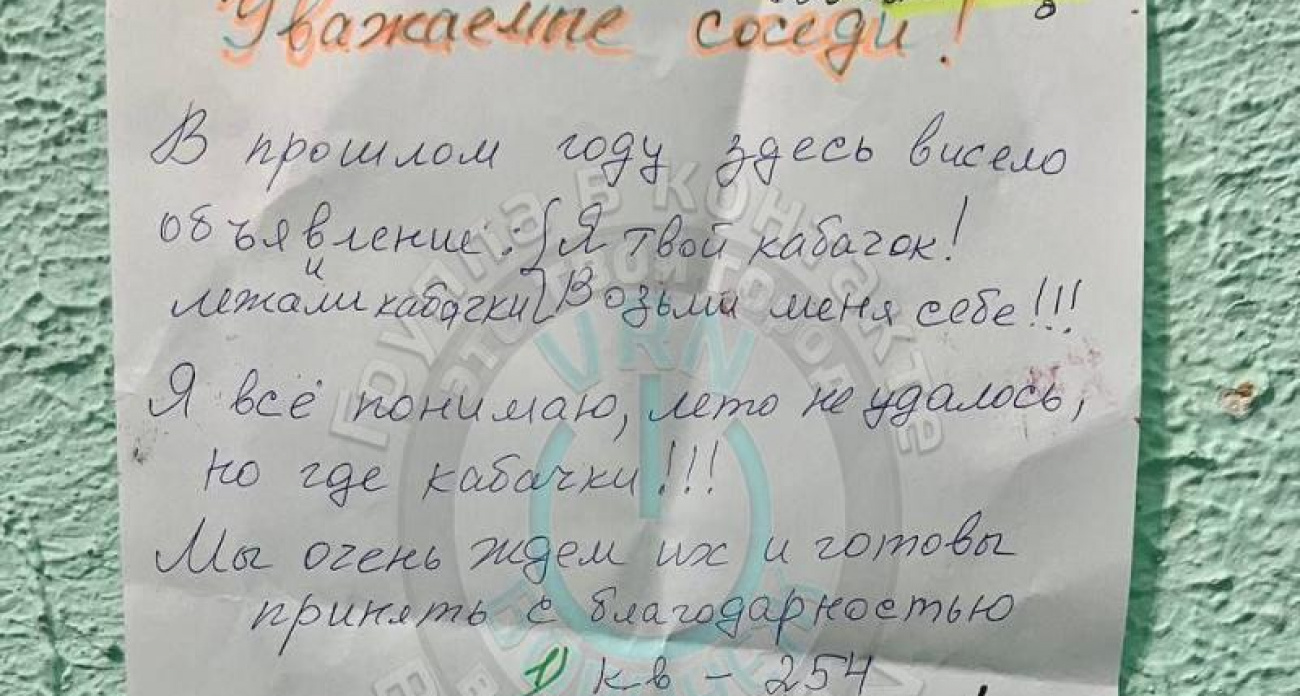 Уважаемые соседи!
В прошлом году здесь висело
объявление: {Я твой кабачок!
и
лежали кабачки} Возьми меня себе!!!
Я всё понимаю, лето не удалось,
но где кабачки!!!
Мы очень ждем их и готовы
принять с благодарностью
1) кв - 254
Группа В контакте
это твой город
VRN